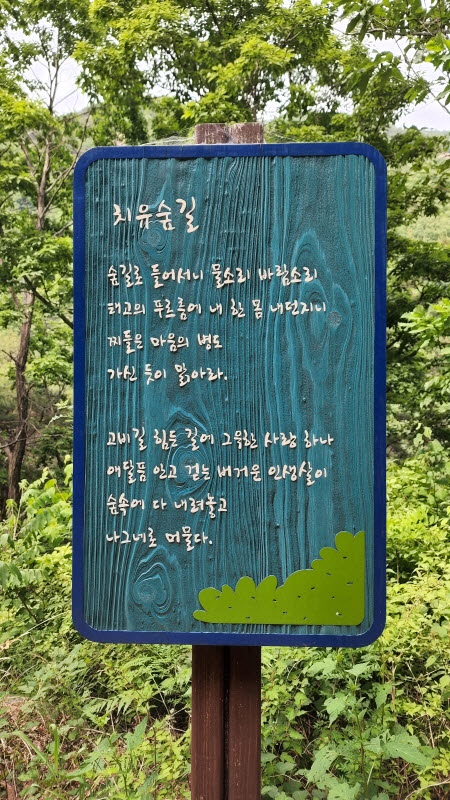 치유숲길
숲길로 들어서니 물소리 바람소리
태고의 푸르름에 내 한 몸 내던지니
찌들은 마음의 병도
가신 듯이 맑아라.
고비길 힘든 길에 그윽한 사랑 하나
애달픔 안고 걷는 버거운 인생살이
숲속에 다 내려놓고
나그네로 머물다.